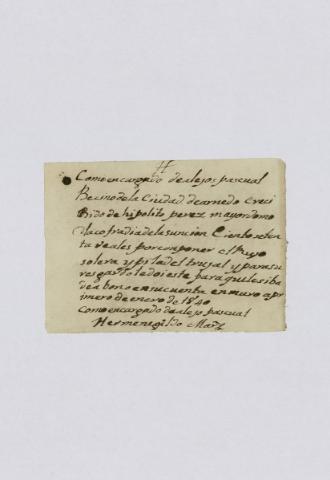 Como encargado de alejos pascual
Becino de la Ciudad de arnedo e reci
bido de hipolito perez mayordomo
de la cofradia de la suncion Ciento seten
ta reales por componer el
solera y pila del trujal y para su
resguardo le doi este para que le sirba
de abono en su cuenta en muro a pri
mero de enero de 1840
como encargado de alejo pascual
Hermenegildo Marz